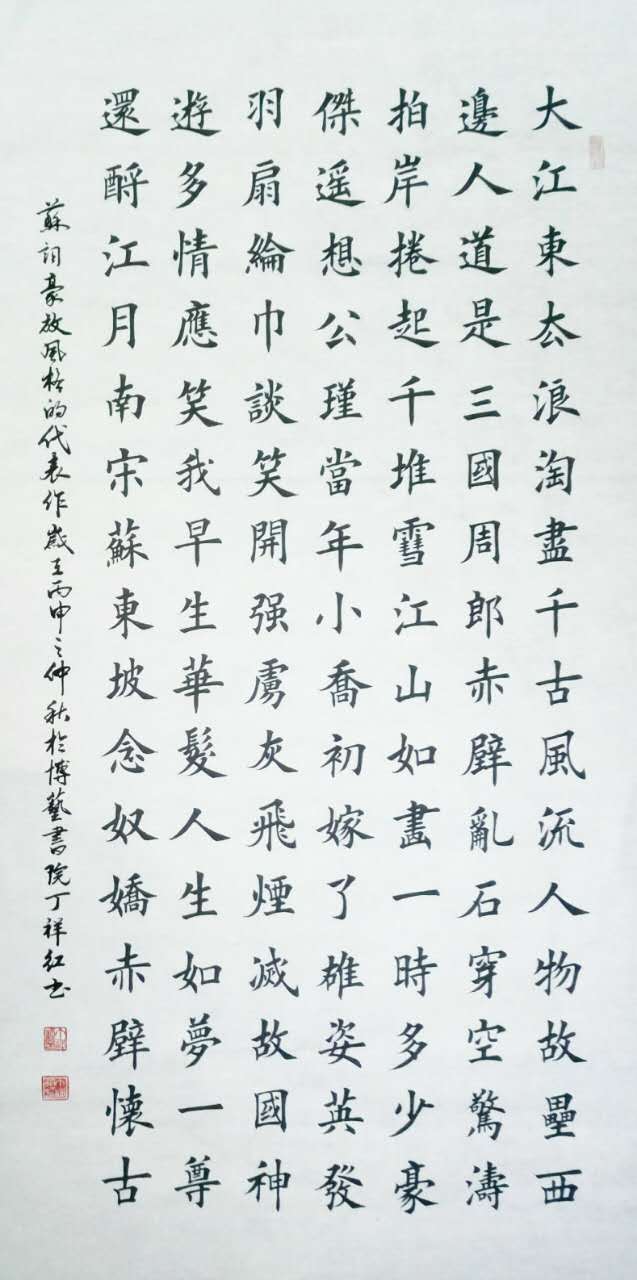 大江東去浪淘盡千古風流人物故壘西
邊人道是三國周郎赤壁亂石穿空驚濤
拍岸捲起千堆雪江山如畫一時多少豪
傑遥想公瑾當年小喬初嫁了雄姿英發
羽扇綸巾談笑開强虜灰飛煙滅故國神
遊多情應笑我早生華髮人生如夢一尊
還酹江月南宋蘇東坡念奴嬌赤壁懷古
蘇詞豪放風格的代表作歲在丙申之仲秋於博藝書院丁祥紅书